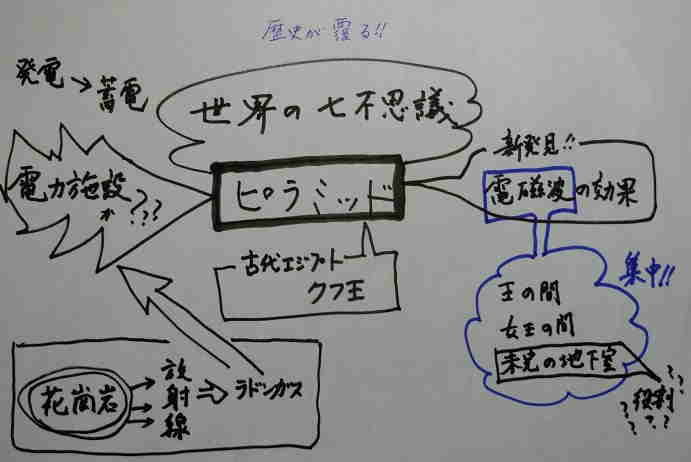 歴史が覆る!!
発電→蓄電
世界の七不思議
電力施設
か???
ピラミッド
新発見!!
電磁波の効果
古代エジプト
クフ王
集中!!
王の間
女王の間
未完の地下室
役割
? ? ? ? ?
花崗岩
放射線
⇒ラドンガス